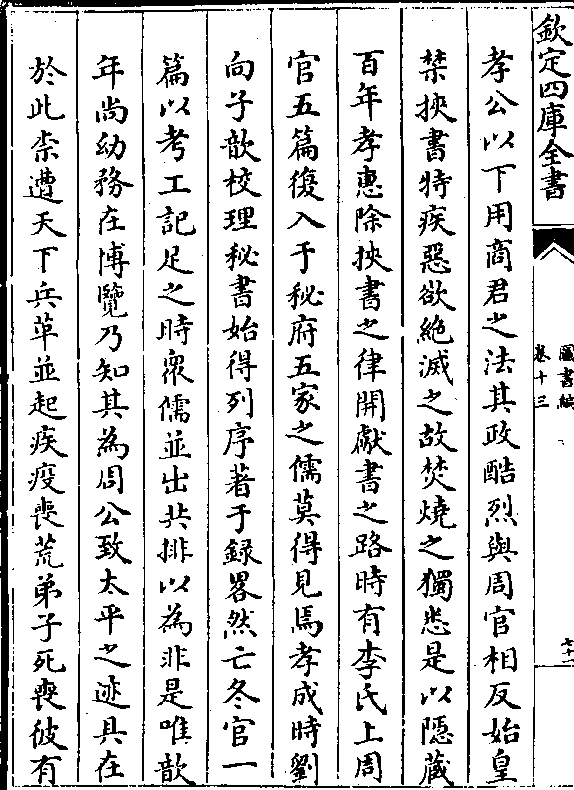 欽定四庫全書
圖書編
卷十三
七十一
孝公以下用商君之法其政酷烈與周官相反始皇
禁挾書特疾惡欲絶滅之故焚燒之獨悉是以隱藏
百年孝惠除挾書之律開獻書之路時有李氏上周
官五篇復入于秘府五家之儒莫得見焉孝成時劉
向子歆校理秘書始得列序著于録畧然亡冬官一
篇以考工記足之時衆儒並出共排以為非是唯歆
年尚幼務在博覽乃知其為周公致太平之迹具在
於此柰遭天下兵革並起疾疫喪荒弟子死喪彼有